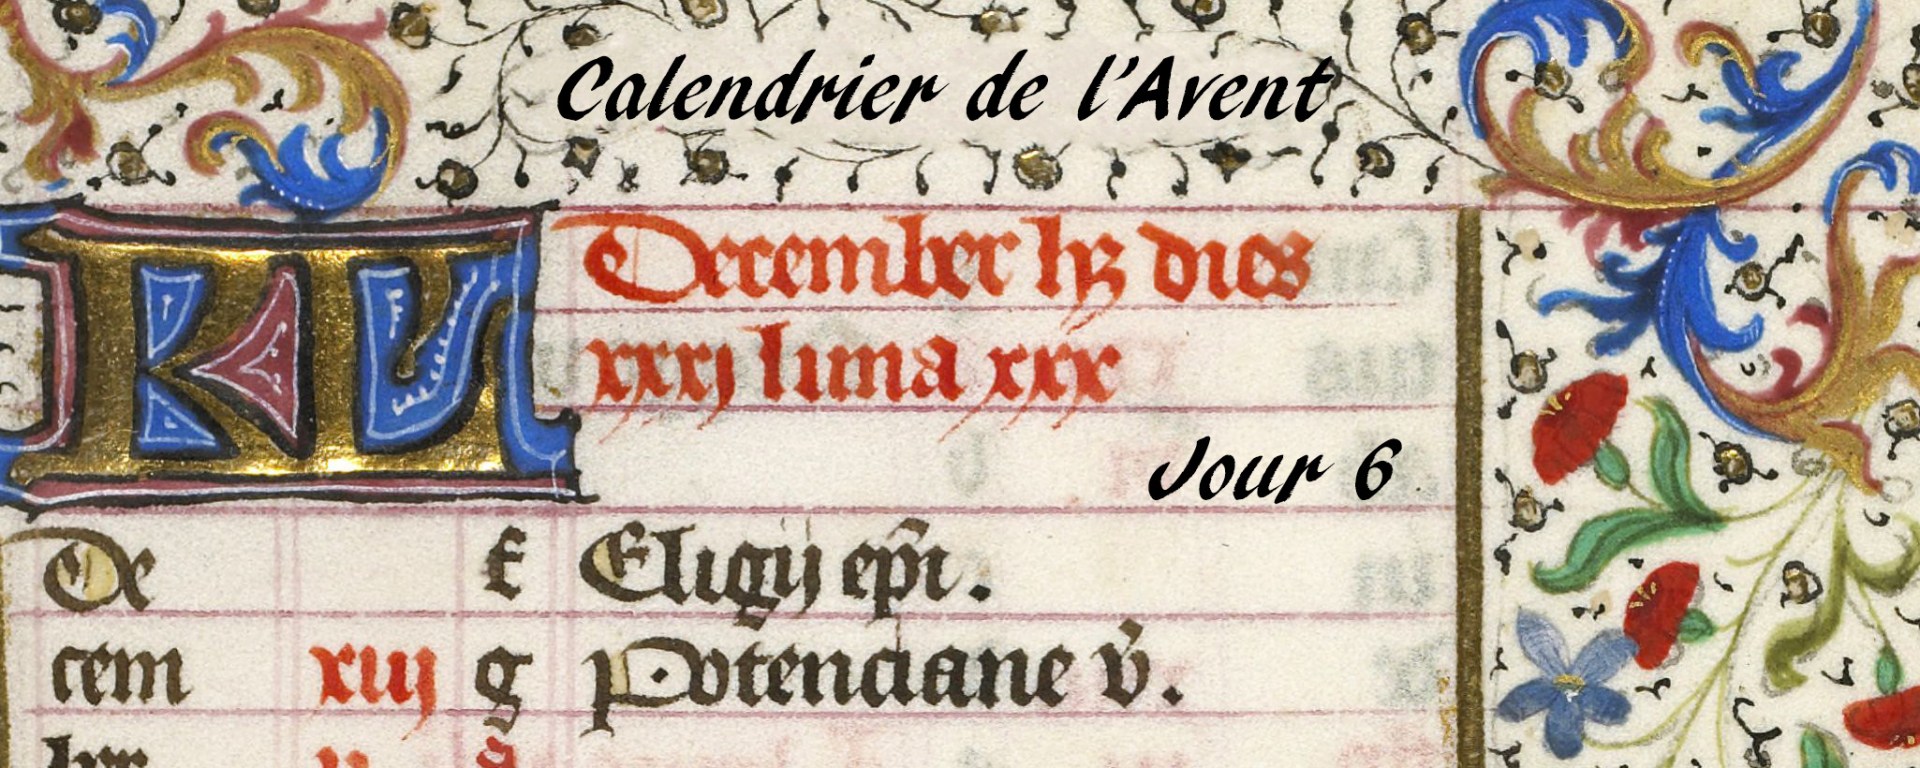 Calendrier de l'Avent
KL
December hʒ dies
xxxj luna xxx
Jour 6
De f Eligij ep̃i.
cem xiij g Potenciane v̾.